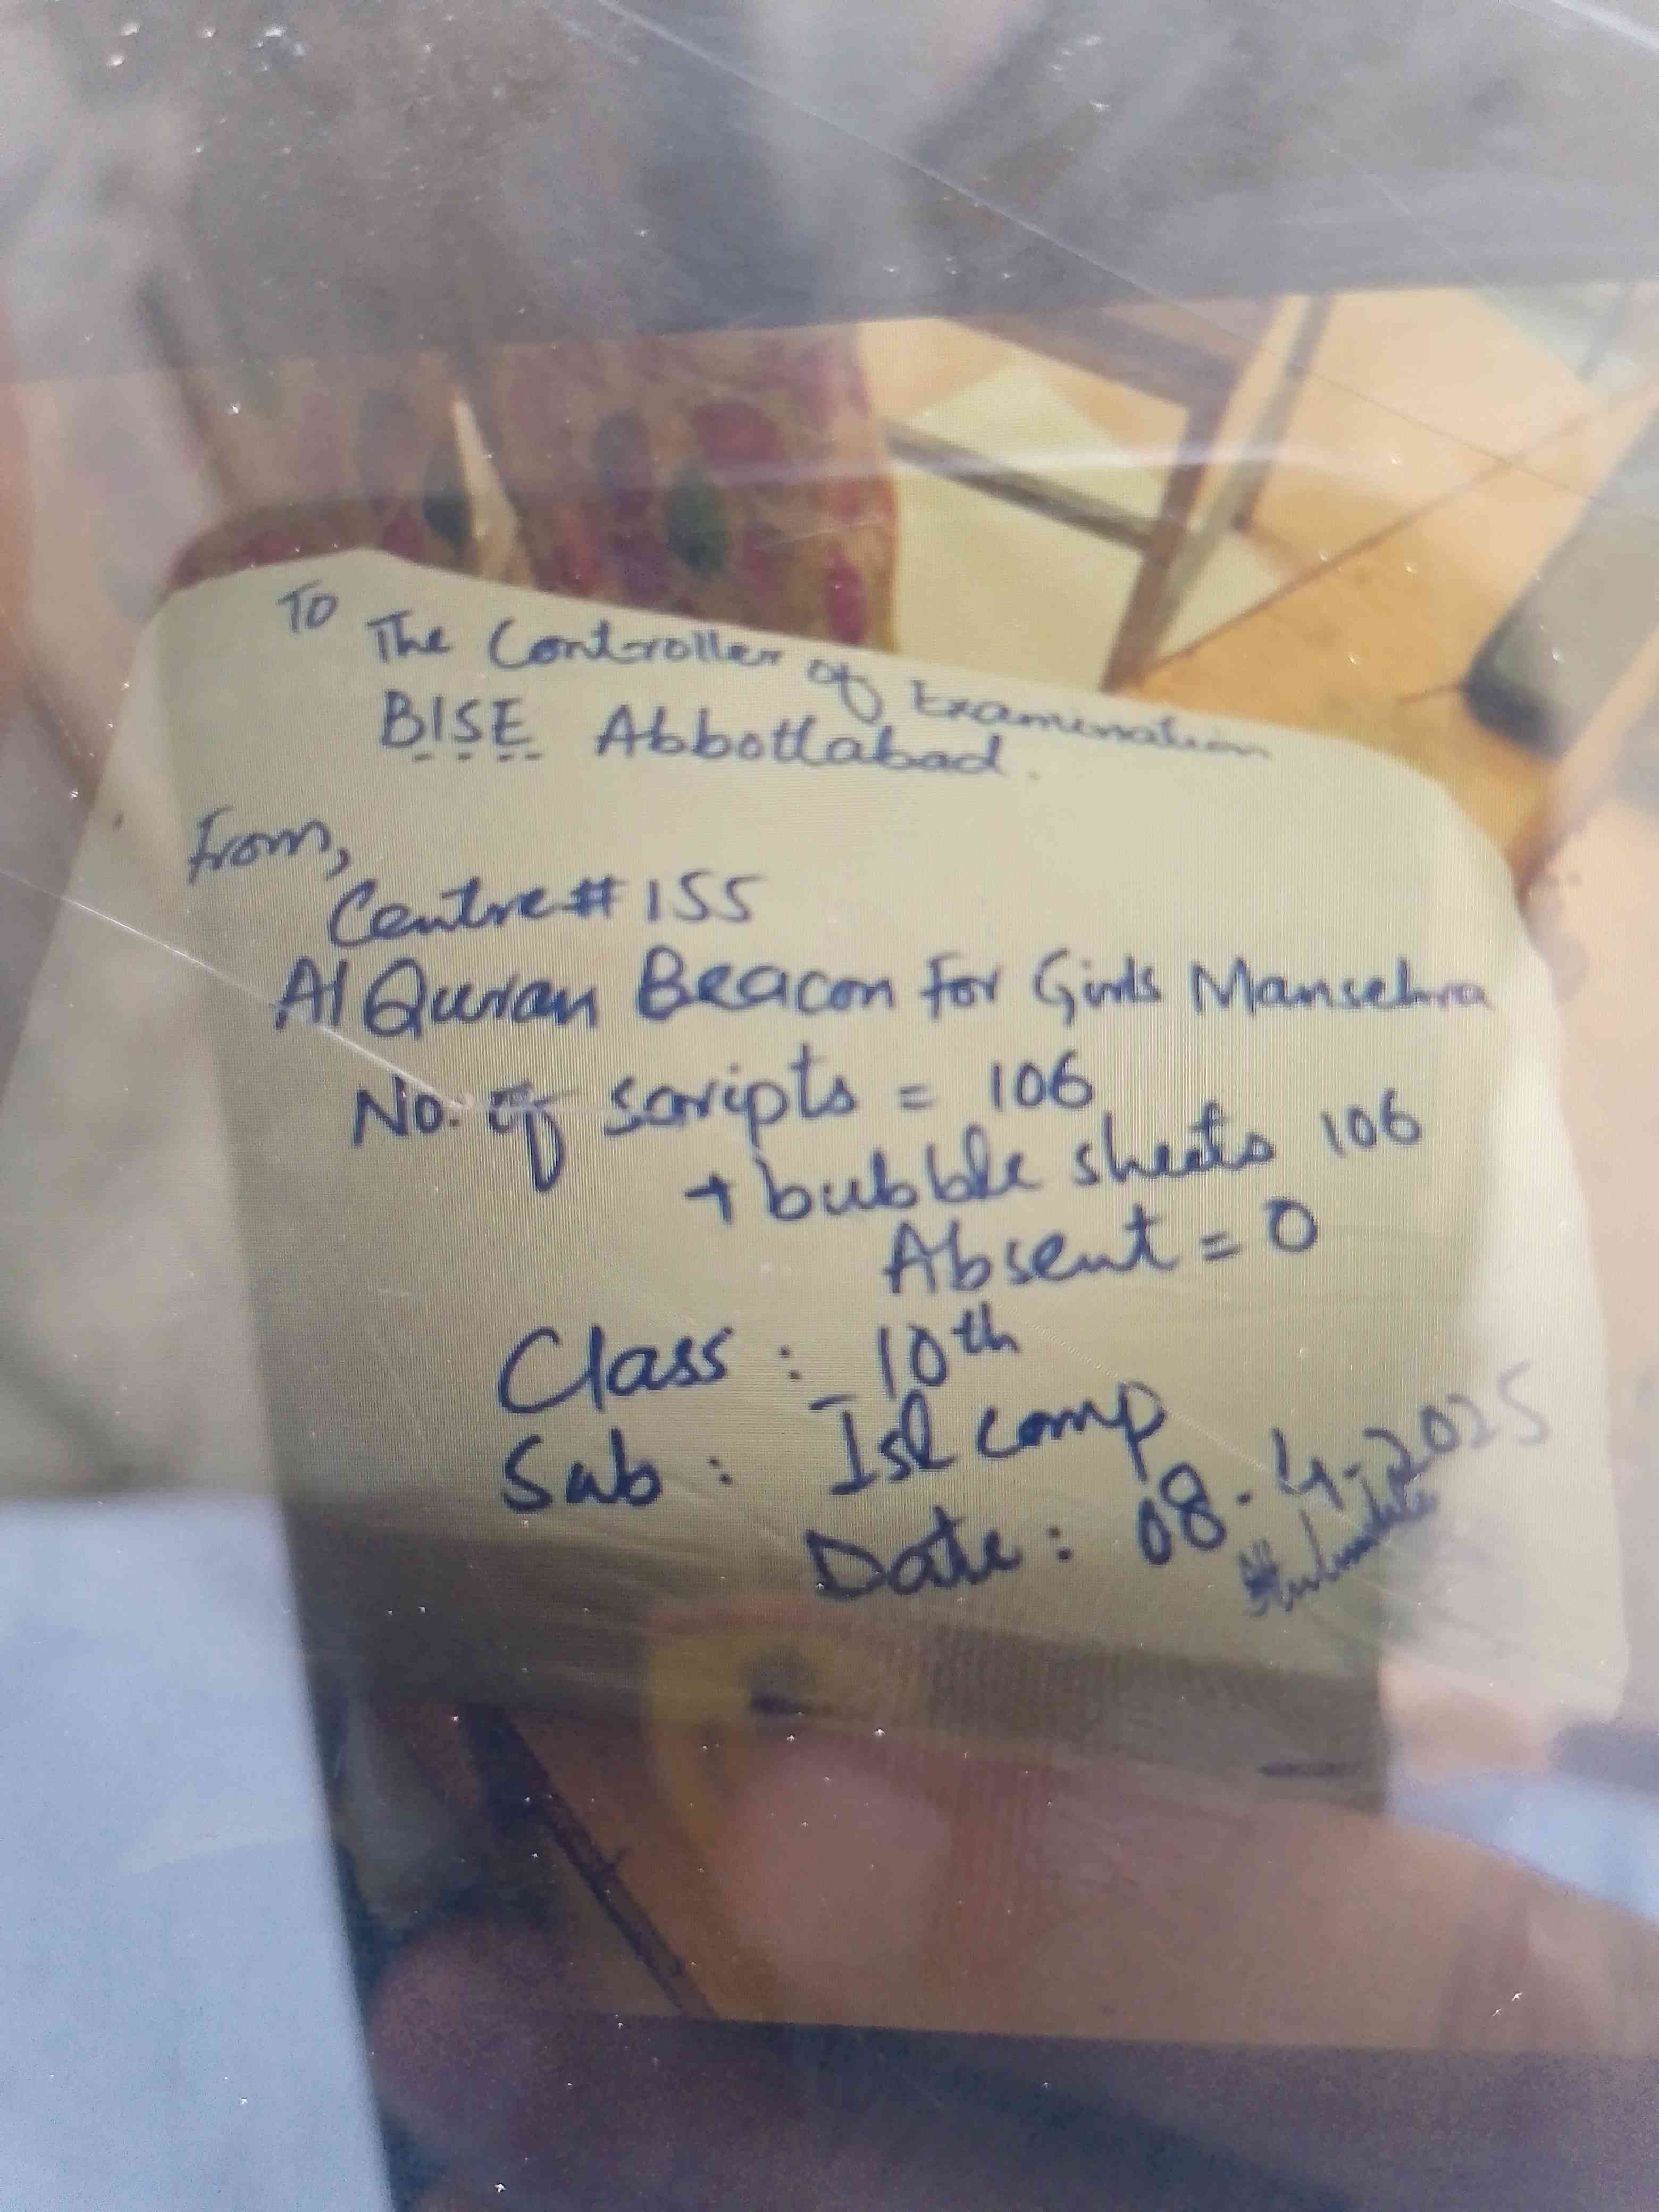 To
The Controller of Examination
BISE Abbottabad.
From,
Centre # 155
Al Quran Beacon For Girls Mansehra
No. of scripts = 106
+ bubble sheets 106
Absent = 0
Class : 10th
Sub : Isl comp
Date : 08.4.2025